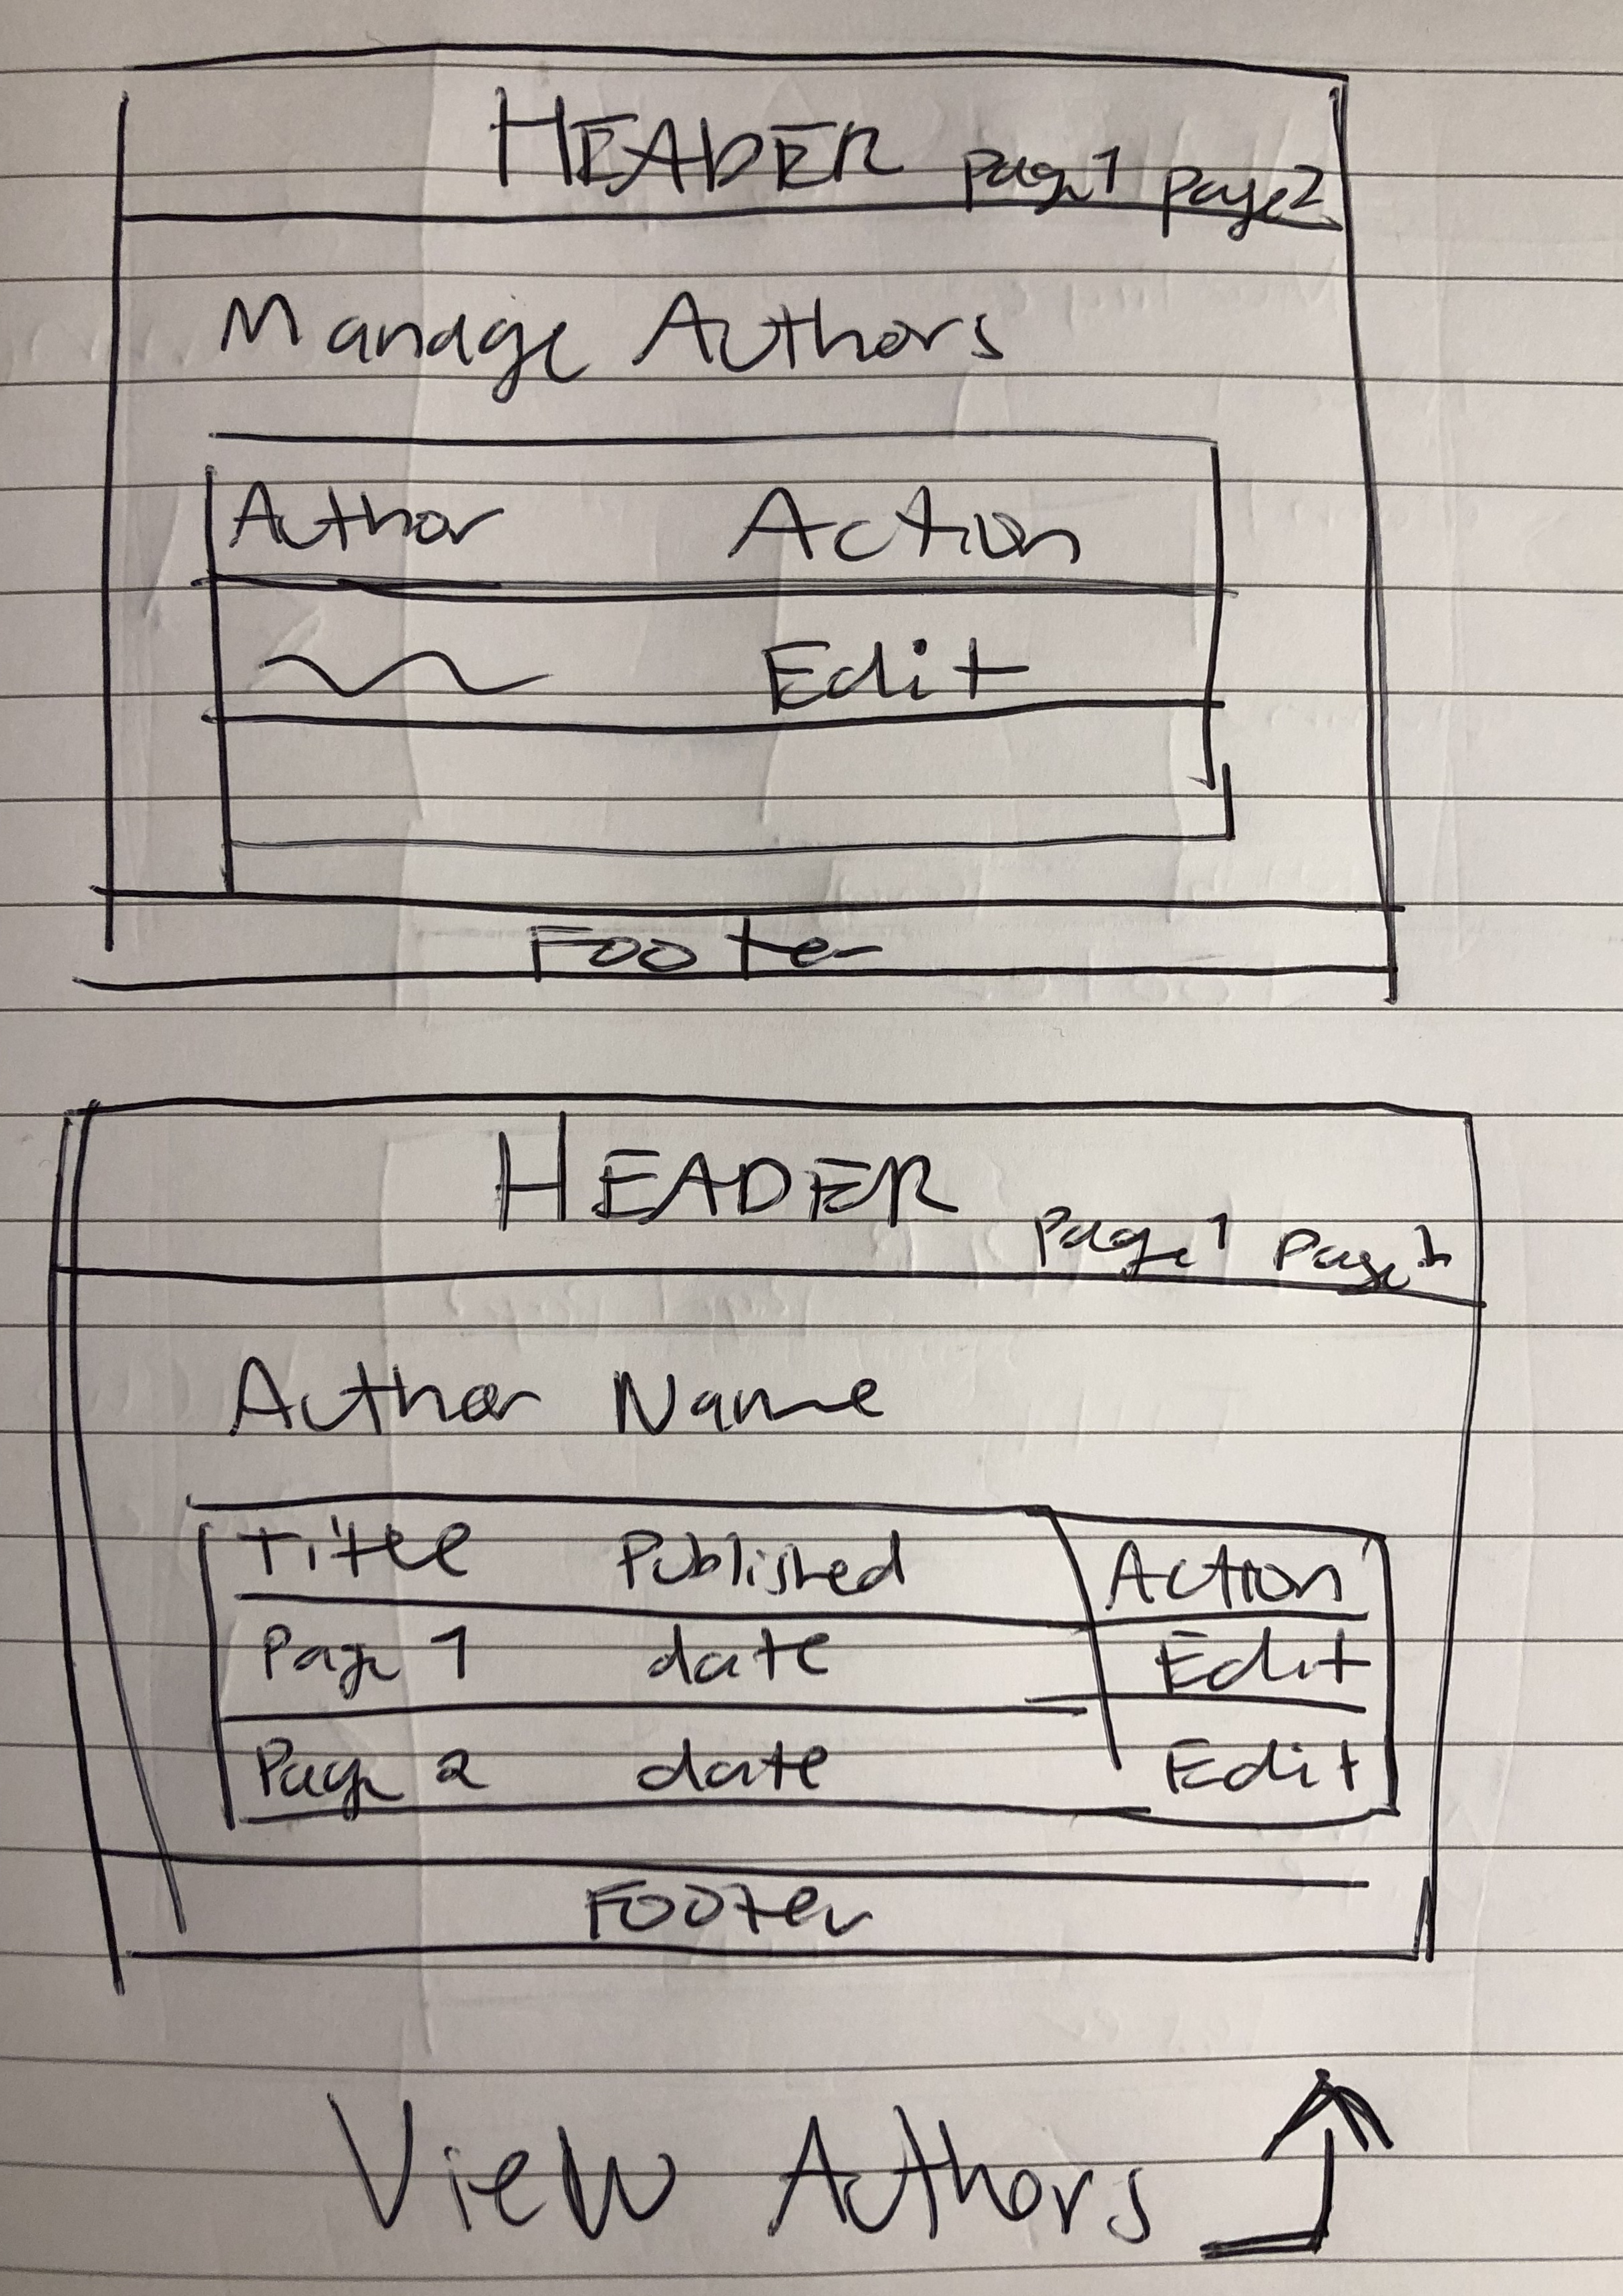 HEADER page1 page2
Manage Authors
Author Action
Edit
Footer
HEADER page1
Author Name
Title Published Action
Page 1 date Edit
Page 2 date Edit
Footer
View Authors